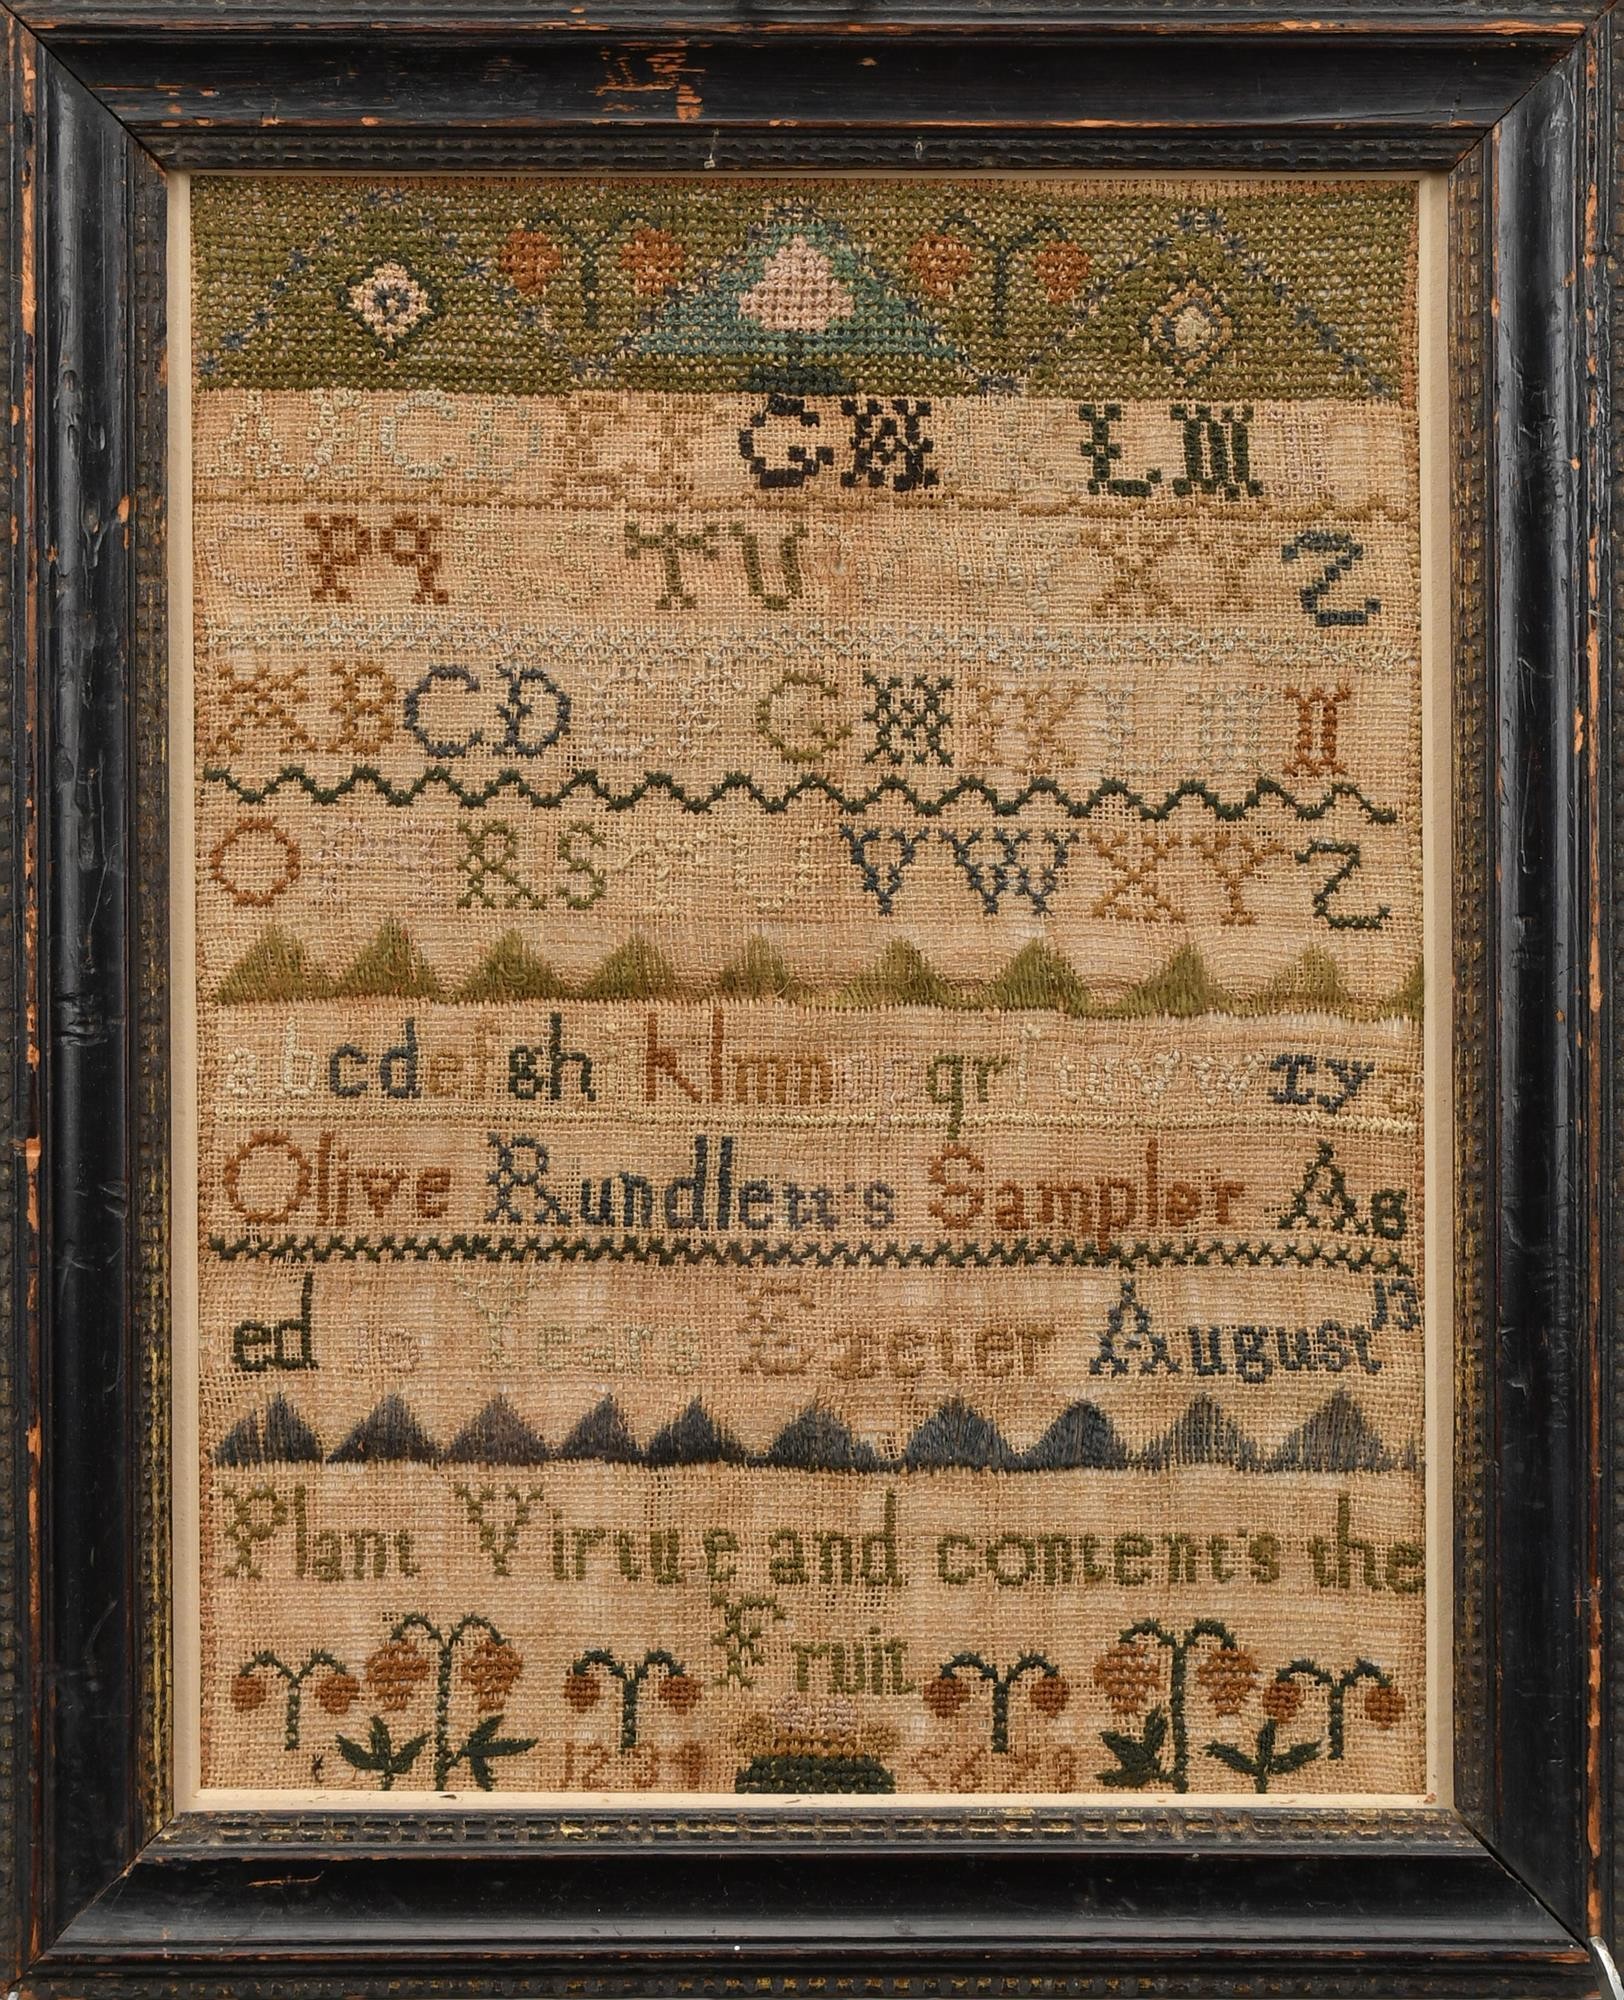 A B C D E F G H I K L M N
O P q R S T U V W X Y Z
A B C D E F G H I K L M N
O P Q R S T U V W X Y Z
a b c d e f g h i k l m n o p q r ſ t u v w x y z
Olive Rundlett's Sampler Ag
ed 10 Years Exeter August 13
Plant Virtue and content's the
Fruit
1 2 3 4 5 6 7 8 9